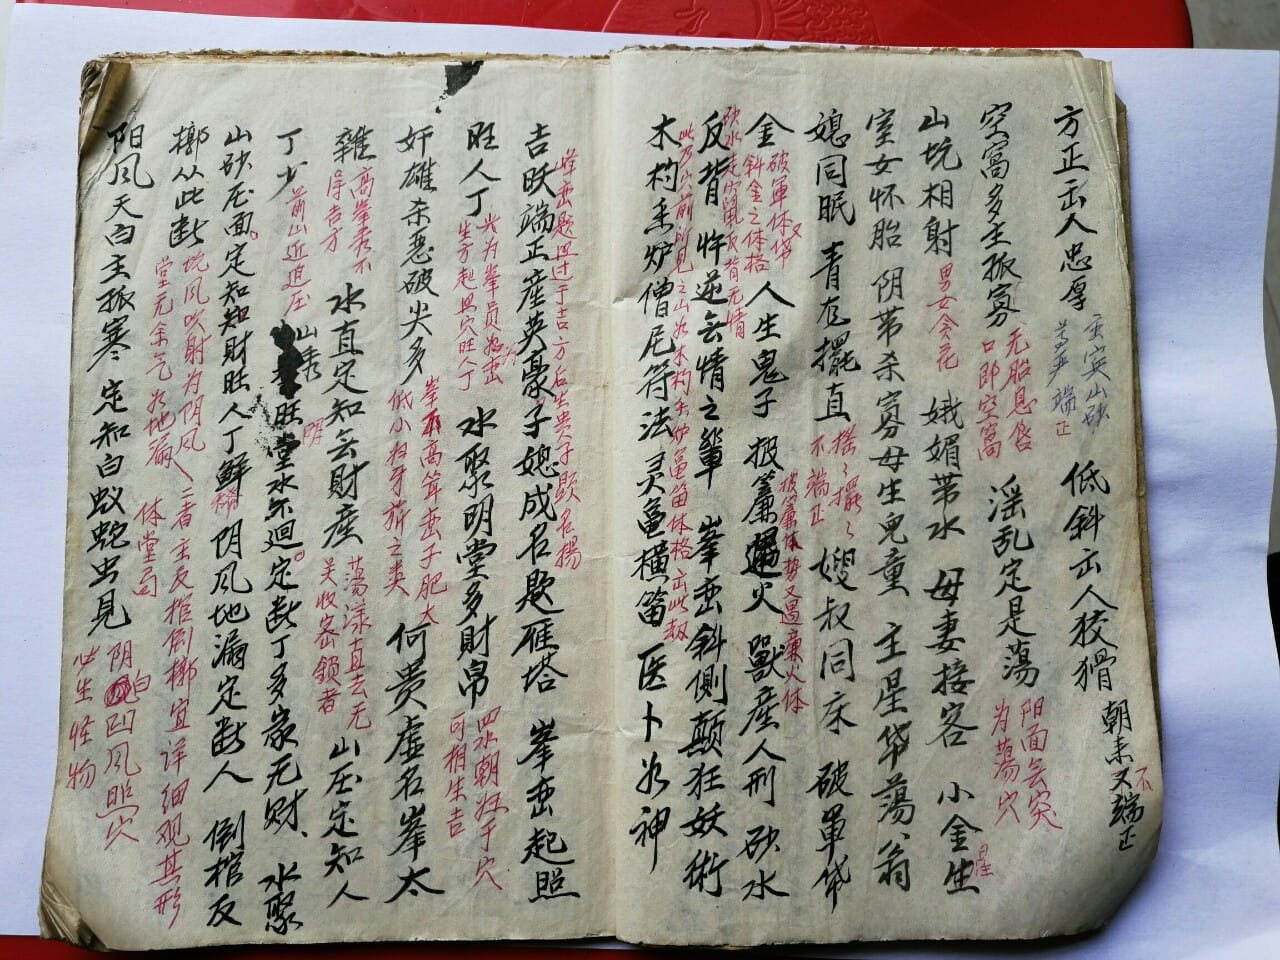 方正出人忠厚 端正 低斜出人狡猾 朝来又不端正
空窝多主孤寡 无胎息唇口即空窝 淫乱定是荡 阳面无突为荡穴
山坑相射 男女贪花 娥媚带水 母妻接客 小金星生
室女怀胎 阴带杀 寡母生儿童 主星带荡、翁
媳同眠 青龙摆直 摇摇摆摆不端正 嫂叔同床 破军带
金 破军体又带斜金之体格 人生鬼子 披簾遇火 披簾体势又遇廉火体 獸産人刑 砂水
反背 砂水走窜反背无情 忤逆无情之輩 峯峦斜側颠狂妖術
木杓香炉僧尼符法灵龟横笛医卜如神
此乃穴前所见之山如木杓香炉龟笛体格出此報
吉旺端正産英豪子媳成名题雁塔 峯峦起照
峰峦起过于吉方后出贵子题名揚
旺人丁 尖为峯員为峦生方起照穴旺人丁 水聚明堂多財帛 四水朝于穴可相生吉
奸雄杀恶破尖多 何贵虚名峯太
峯高耸峦子肥大低小
雜 高峯秀不得吉方 水直定知无財産 荡漾直去无关收密鎖者 山压定知人
丁少 前山近迫压 山秀 旺堂水不迴。定断丁多家无財、水聚
山砂压面。定知知財旺人丁鮮 稀 阴风地漏定断人 倒棺反
槨从此断 坑风吹射为阴风、堂无余气为地漏 二者主反棺倒槨宜详细观其形体堂局
阳风天白主孤寒 定知白蚁蛇虫見 阴白凹风照穴必生怪物